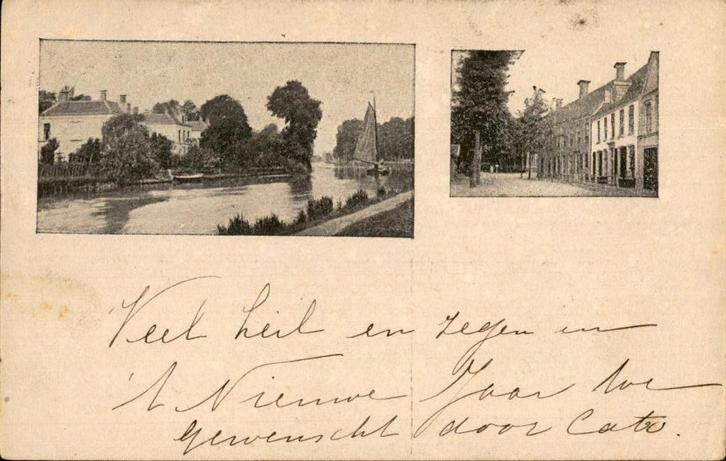 Veel heil en zegen in
't Nieuwe Jaar toe
gewenscht door Cato.